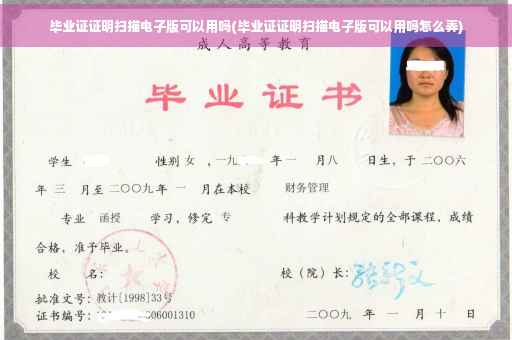 毕业证证明扫描电子版可以用吗(毕业证证明扫描电子版可以用吗怎么弄)
成人高等教育
毕业证书
学生 性别 女 ，一九 年 一 月 八 日生，于 二〇〇六
年 三 月至 二〇〇九 年 一 月在本校 财务管理
专业 函授 学习，修完 专 科教学计划规定的全部课程，成绩
合格，准予毕业。
校 名： 校（院）长：
批准文号：教计[1998]33号
证书编号： 06001310 二〇〇九 年 一 月 十 日